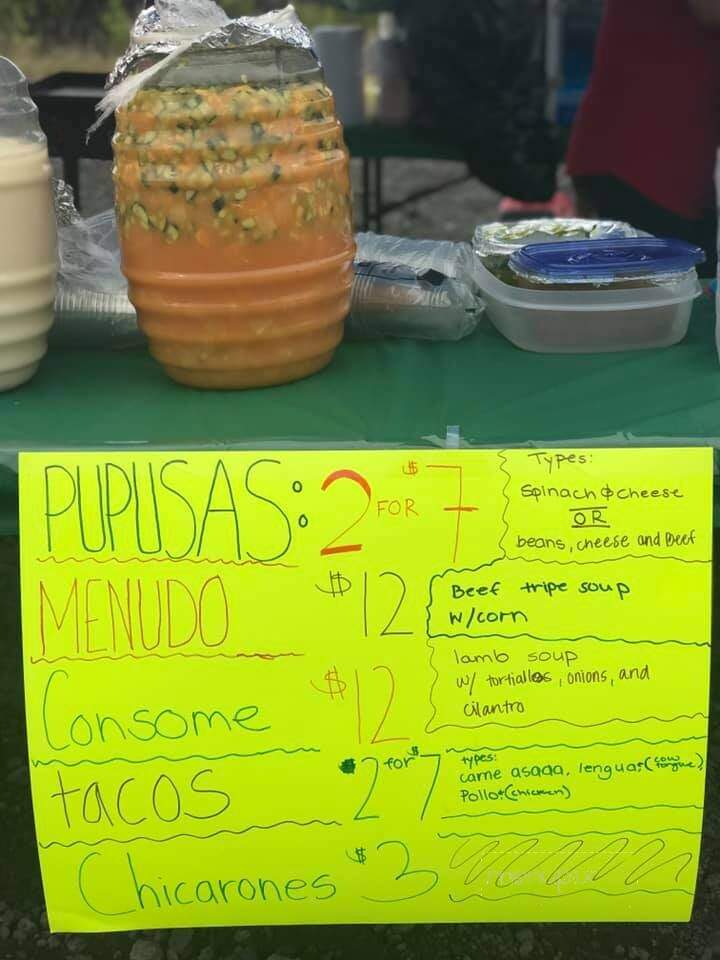 PUPUSAS: 2 FOR $7
Types:
Spinach & cheese
OR
beans, cheese and Beef
MENUDO $12
Beef tripe soup
w/corn
Consome $12
lamb soup
w/ tortiallos, onions, and
cilantro
tacos 2 for $7
types:
carne asada, lengua:(cow tongue)
Pollo:(chicken)
Chicarones $3